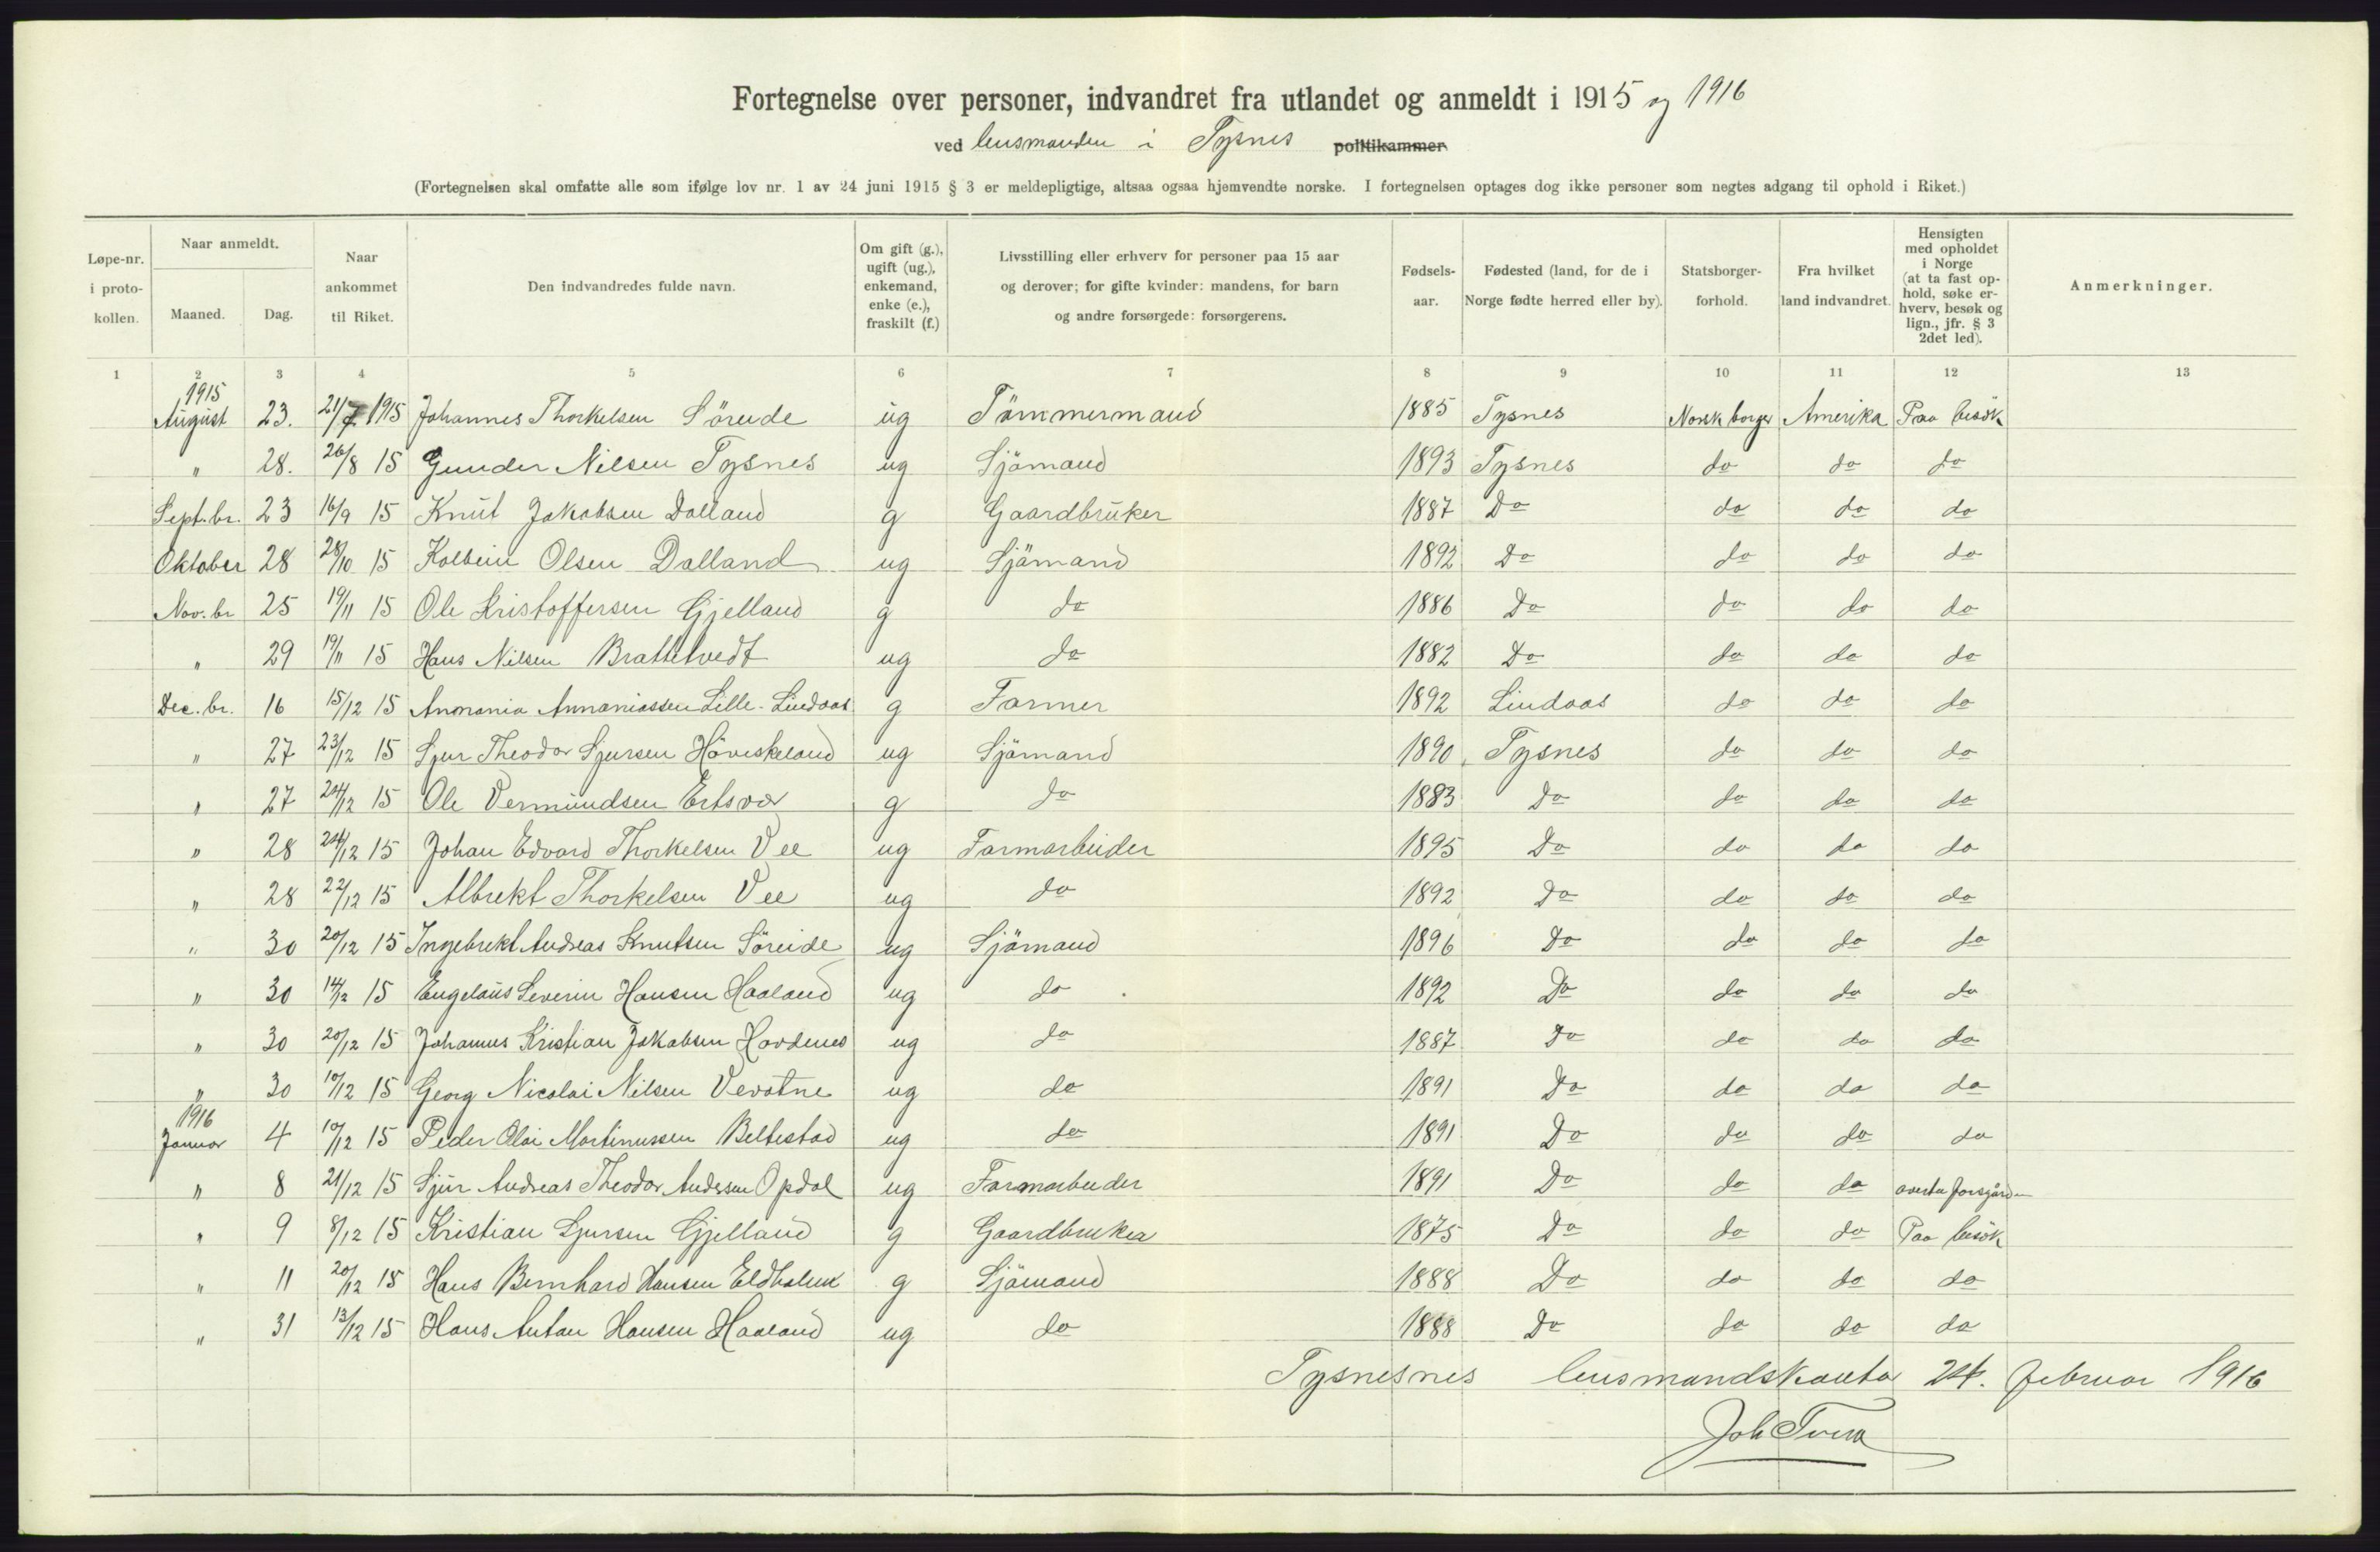 Fortegnelse over personer, indvandret fra utlandet og anmeldt i 1915 og 1916
ved lensmanden i Tysnes politikammer
(Fortegnelsen skal omfatte alle som ifølge lov nr. 1 av 24 juni 1915 § 3 er meldepligtige, altsaa ogsaa hjemvendte norske. I fortegnelsen optages dog ikke personer som negtes adgang til ophold i Riket.)
Løpe-nr. i proto-kollen. Naar anmeldt. Maaned. Dag. Naar ankommet til Riket. Den indvandredes fulde navn. Om gift (g.), ugift (ug.), enkemand, enke (e.), fraskilt (f.) Livsstilling eller erhverv for personer paa 15 aar og derover; for gifte kvinder: mandens, for barn og andre forsørgede: forsørgerens. Fødsels-aar. Fødested (land, for de i Norge fødte herred eller by). Statsborger-forhold. Fra hvilket land indvandret. Hensigten med opholdet i Norge (at ta fast op-hold, søke er-hverv, besøk og lign., jfr. § 3 2det led). Anmerkninger.
1 2 3 4 5 6 7 8 9 10 11 12 13
1915
August 23. 21/7 1915 Johannes Thorkelsen Söreide ug Tömmermand 1885 Tysnes Norsk borger Amerika Paa besök
" 28. 26/8 15 Gunder Nilsen Tysnes ug Sjömand 1893 Tysnes do do do
Sept.br. 23 16/9 15 Knut Jakobsen Dalland g Gaardbruker 1887 Do do do do
Oktober 28 28/10 15 Kolbein Olsen Dalland ug Sjömand 1892 Do do do do
Nov.br 25 19/11 15 Ole Kristoffersen Gjelland g do 1886 Do do do do
" 29 19/11 15 Hans Nilsen Brattetvedt ug do 1882 Do do do do
Dec.br. 16 15/12 15 Annania Annaniassen Lille-Lindaas g Farmer 1892 Lindaas do do do
" 27 23/12 15 Sjur Theodor Sjursen Höviskeland ug Sjömand 1890 Tysnes do do do
" 27 24/12 15 Ole Vermundsen Ertsvær g do 1883 Do do do do
" 28 24/12 15 Johan Edvard Thorkelsen Vee ug Farmarbeider 1895 Do do do do
" 28 22/12 15 Albrekt Thorkelsen Vee ug do 1892 Do do do do
" 30 20/12 15 Ingebrekt Andreas Knutsen Söreide ug Sjömand 1896 Do do do do
" 30 14/12 15 Engelaus Severin Hansen Haaland ug do 1892 Do do do do
" 30 20/12 15 Johannes Kristian Jakobsen Hovdenes ug do 1887 Do do do do
" 30 10/12 15 Georg Nicolai Nilsen Vevatne ug do 1891 Do do do do
1916
Januar 4 10/12 15 Peder Olai Martinussen Beltestad ug do 1891 Do do do do
" 8 21/12 15 Sjur Andreas Theodor Andersen Opdal ug Farmarbeider 1891 Do do do overta
" 9 8/12 15 Kristian Sjursen Gjelland g Gaardbruker 1875 Do do do Paa besök
" 11 20/12 15 Hans Bernhard Hansen g Sjömand 1888 Do do do do
" 31 13/12 15 Hans Antan Hansen Haaland ug do 1888 Do do do do
Tysnesnes lensmandskontor 24. februar 1916